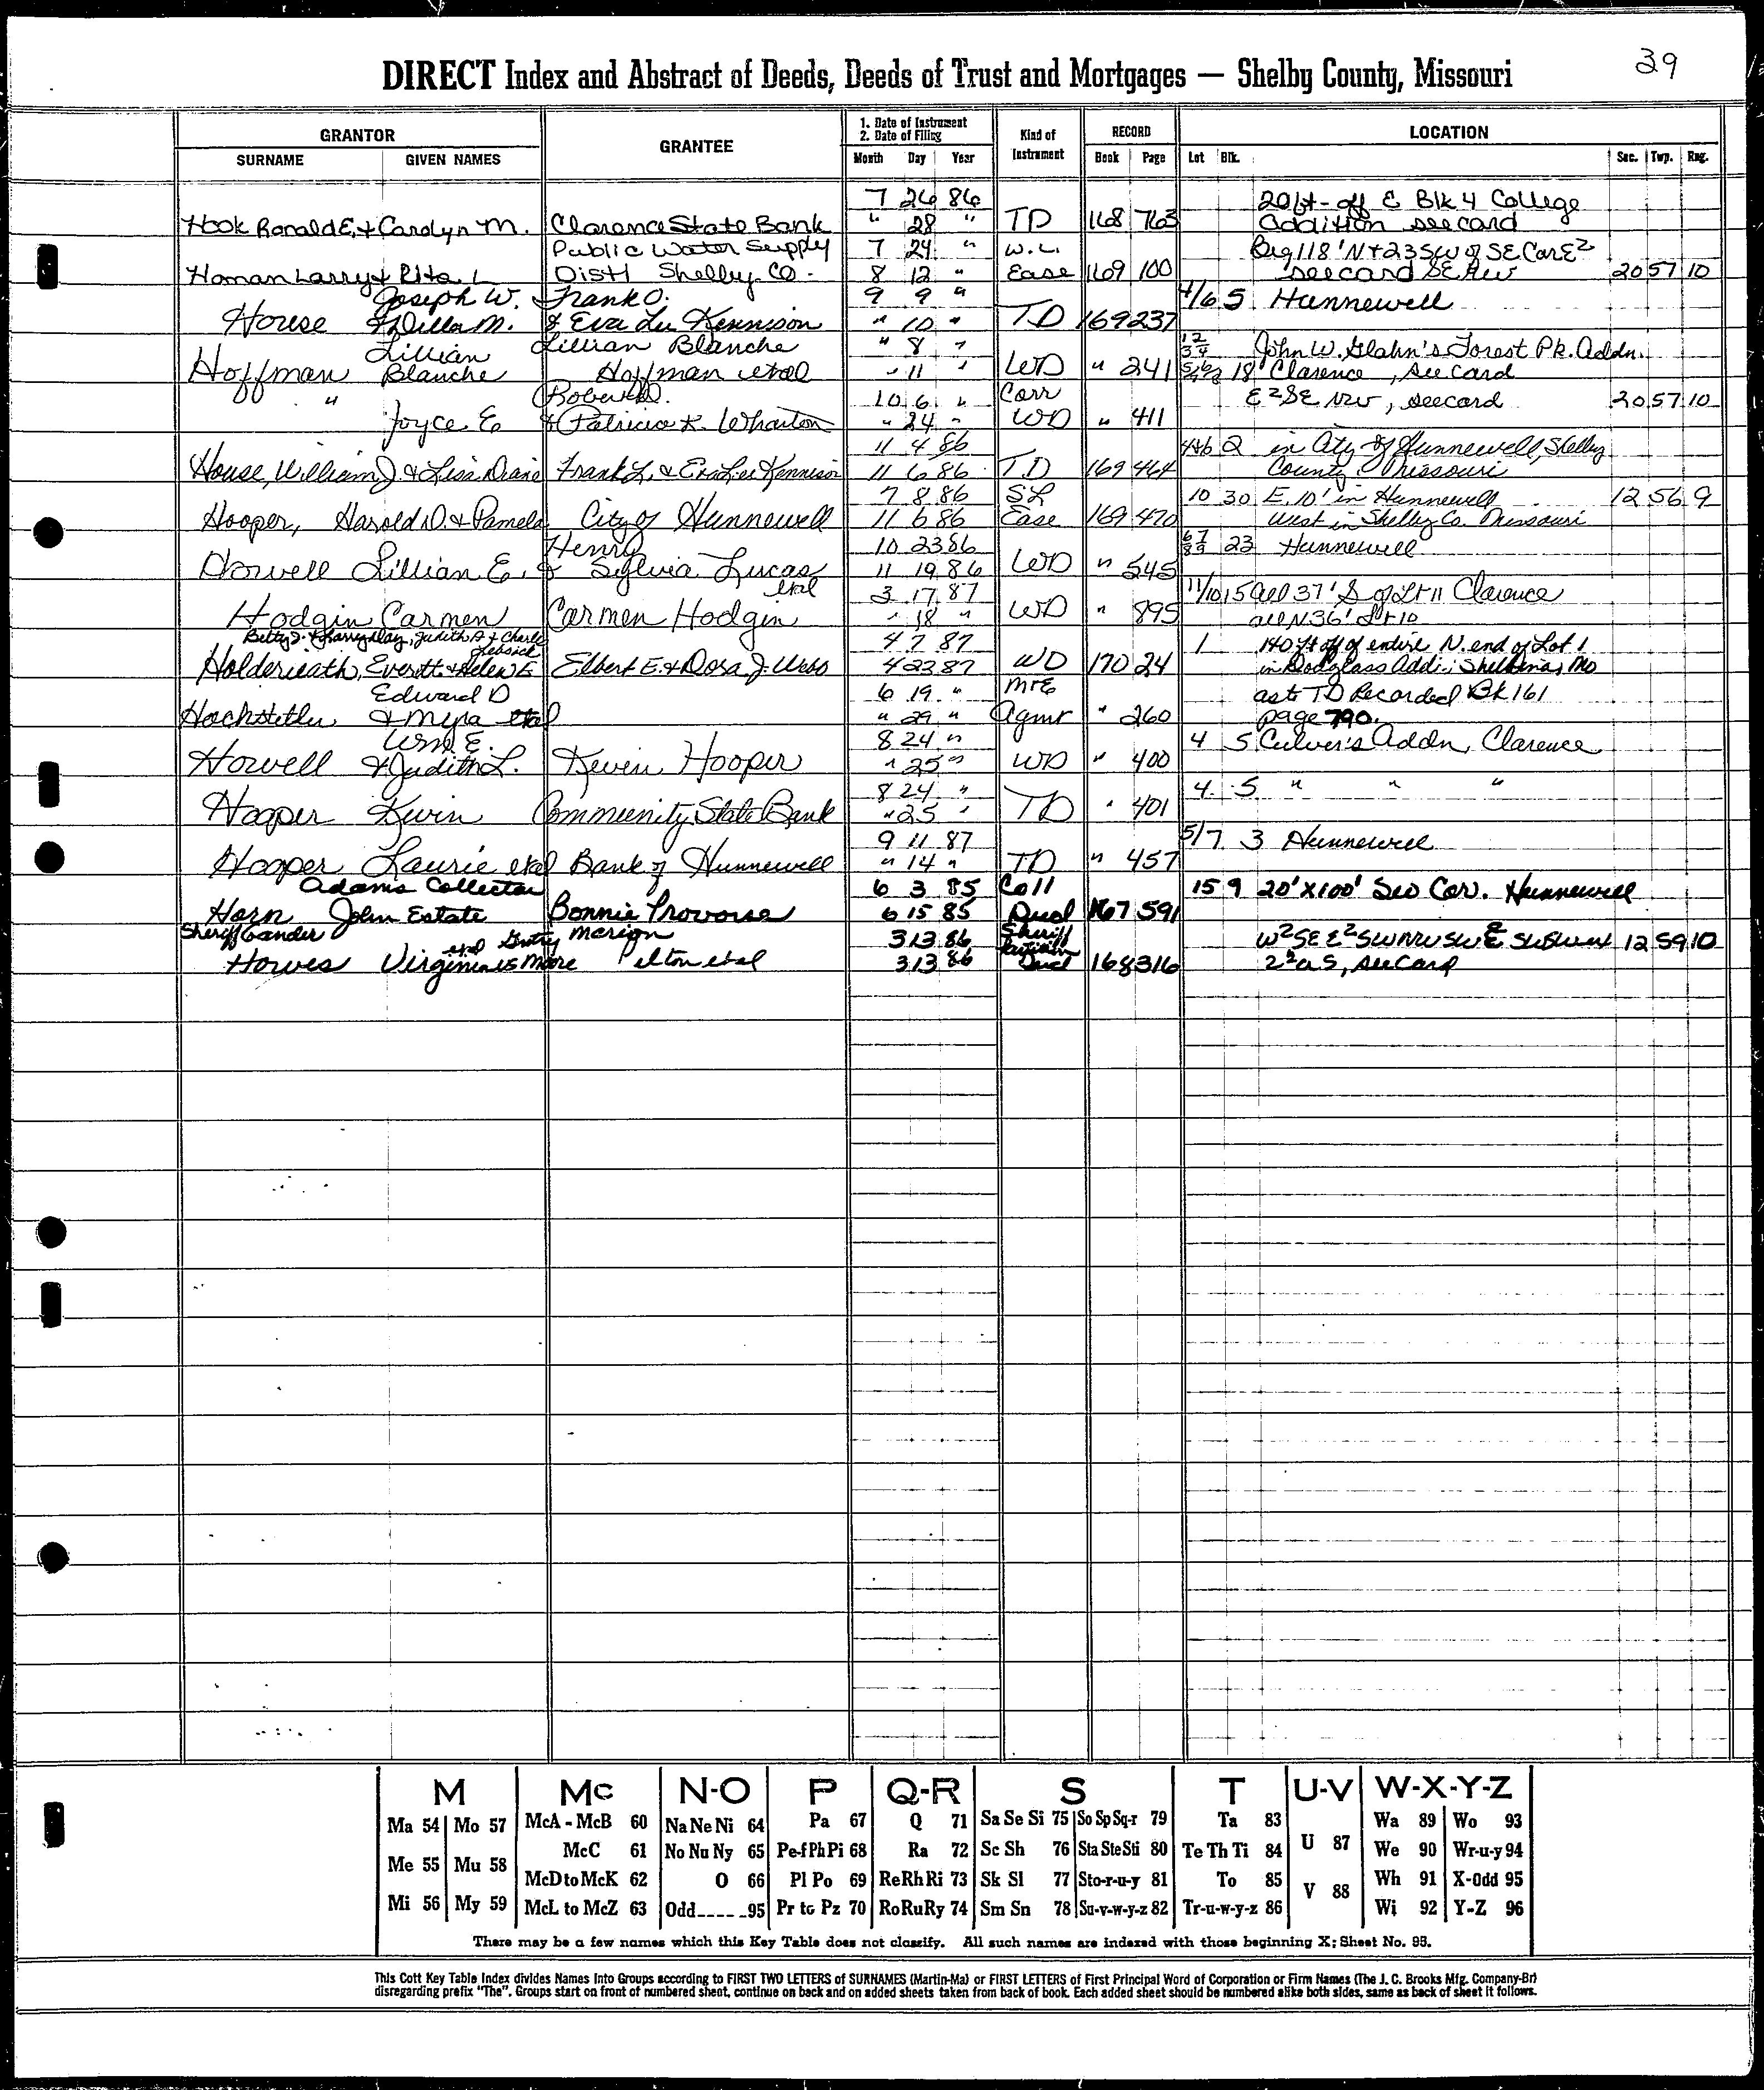 39
DIRECT Index and Abstract of Deeds, Deeds of Trust and Mortgages — Shelby County, Missouri
GRANTOR GRANTEE 1. Date of Instrument 2. Date of Filing Kind of Instrument RECORD LOCATION
SURNAME GIVEN NAMES Month Day Year Book Page Lot Blk. Sec. Twp. Rng.
7 26 86 20ft-off E Blk 4 College
Hook Ronald E, + Carolyn M. Clarence State Bank " 28 " TD 168 763 Addition see card
Public Water Supply 7 24 " W.L. Beg 118' N + 23 SW of SE Cor E2
Homan Larry + Rita L Dist 1 Shelby Co. 8 12 " Ease 169 100 see card SE NW 20 57 10
Joseph W. Frank O. 9 9 " 4/6 5 Hunnewell
House & Willa M. & Eva Lee Kennison " 10 " TD 169 237
Lillian Lillian Blanche " 8 " 1 2 3 4 John W. Glahn's Forest Pk. Addn.
Hoffman Blanche Hoffman etal " 11 " WD " 241 18 Clarence, see card
" Robert D. 10 6 " Corr E2 SE NW, see card 20 57 10
Joyce E & Patricia K. Wharton " 24 " WD " 411
11 4 86 2 in City of Hunnewell, Shelby
House, William J. & Lisa Diane Frank L. & Eva Lee Kennison 11 6 86 TD 169 464 County Missouri
7 8 86 SL 10 30 E. 10' in Hunnewell 12 56 9
Hooper, Harold D. & Pamela City of Hunnewell 11 6 86 Ease 169 470 West in Shelby Co. Missouri
Henry 10 23 86 6 7 8 9 23 Hunnewell
Howell Lillian E. & Sylvia Lucas 11 19 86 WD " 545
etal 3 17 87 11/10 15 all 37' S of Lt 11 Clarence
Hodgin Carmen Carmen Hodgin " 18 " WD " 895 all N 36' Lt 10
Betty J. & Harry Day, Judith A + Charle 4 7 87 1 140 ft off of entire N. end of Lot 1
Holderieath, Everett + Helen E Elbert E. + Dora J. Webb 4 23 87 WD 170 24 in Douglass Addi; Shelbina, Mo
Edward D 6 19 " Mtg as to TD Recorded Bk 161
Hochstetler & Myra etal " 29 " Agmt " 260 page 790.
Wm. E. 8 24 " 4 5 Culver's Addn, Clarence
Howell & Judith L. Kevin Hooper " 25 " WD " 400
8 24 " 4 5 " " "
Hooper Kevin Community State Bank " 25 " TD " 401
9 11 87 5/7 3 Hunnewell
Hooper Laurie etal Bank of Hunnewell " 14 " TD " 457
Adams Collector 6 3 85 Coll 15 9 20' X 100' SW Cor. Hunnewell
Horn John Estate Bonnie Provorse 6 15 85 Deed 167 591
Sheriff Gander Marion 3 13 86 Sheriff W2 SE E2 SW NW SW 12 59 10
Howes Virginia vs Moore Pelton etal 3 13 86 Partition Deed 168 316 22a S, see card
M Mc N-O P Q-R S T U-V W-X-Y-Z
Ma 54 Mo 57 McA - McB 60 Na Ne Ni 64 Pa 67 Q 71 Sa Se Si 75 So Sp Sq-r 79 Ta 83 Wa 89 Wo 93
McC 61 No Nu Ny 65 Pe-f Ph Pi 68 Ra 72 Sc Sh 76 Sta Ste Sti 80 Te Th Ti 84 U 87 We 90 Wr-u-y 94
Me 55 Mu 58 McD to McK 62 O 66 Pl Po 69 Re Rh Ri 73 Sk Sl 77 Sto-r-u-y 81 To 85 V 88 Wh 91 X-Odd 95
Mi 56 My 59 McL to McZ 63 Odd____95 Pr to Pz 70 Ro Ru Ry 74 Sm Sn 78 Su-v-w-y-z 82 Tr-u-w-y-z 86 Wi 92 Y-Z 96
There may be a few names which this Key Table does not classify. All such names are indexed with those beginning X; Sheet No. 95.
This Cott Key Table Index divides Names Into Groups according to FIRST TWO LETTERS of SURNAMES (Martin-Ma) or FIRST LETTERS of First Principal Word of Corporation or Firm Names (The J. C. Brooks Mfg. Company-Br)
disregarding prefix "The". Groups start on front of numbered sheet, continue on back and on added sheets taken from back of book. Each added sheet should be numbered alike both sides, same as back of sheet it follows.